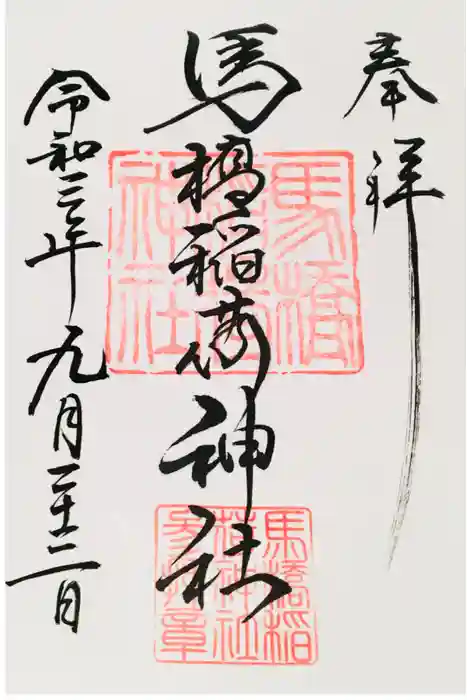 奉拝
馬橋稲荷神社
令和三年九月二十二日
馬橋
稲荷
神社
馬橋稲
荷神社
参拝章